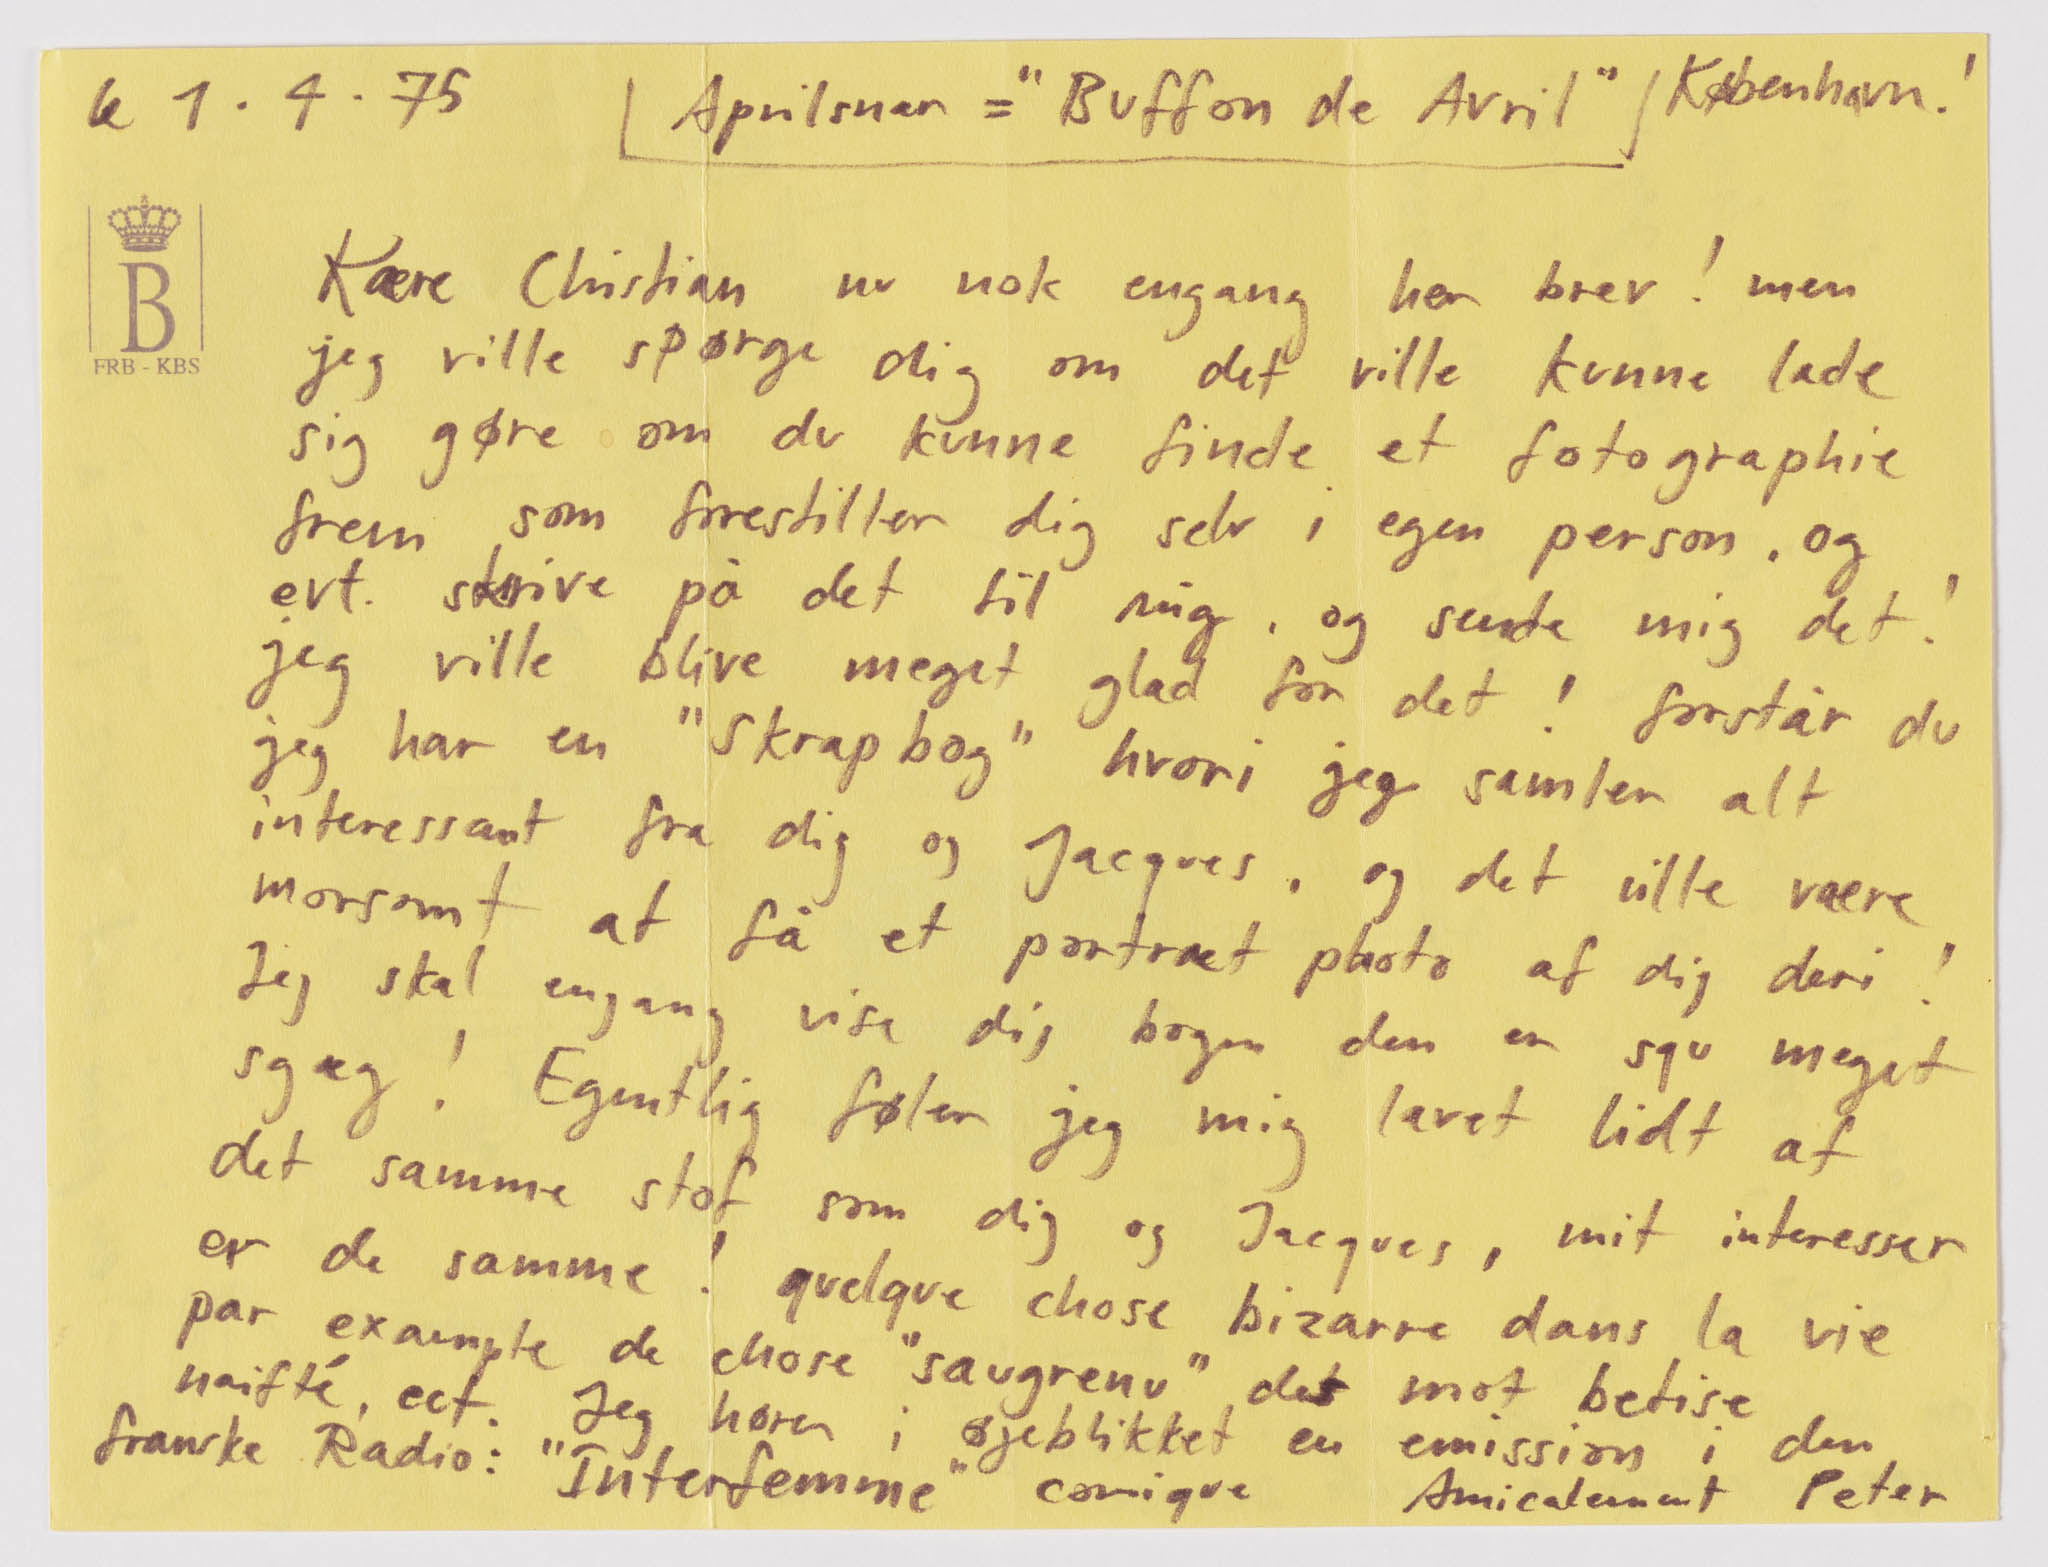 le 1. 4. 75 Aprilsnar = "Buffon de Avril" København!
B
FRB - KBS
Kære Christian nu nok engang her brev! men
jeg ville spørge dig om det ville kunne lade
sig gøre om du kunne finde et fotographie
frem som forestiller dig selv i egen person, og
evt. skrive på det til mig, og sende mig det!
jeg ville blive meget glad for det! forstår du
jeg har en "Skrapbog" hvori jeg samler alt
interessant fra dig og Jacques, og det ville være
morsomt at få et portræt photo af dig deri!
Jeg skal engang vise dig bogen den er squ meget
sgæg! Egentlig føler jeg mig lavet lidt af
det samme stof som dig og Jacques, mit interesser
er de samme! quelque chose bizarre dans la vie
par exemple de chose "saugrenu" des mot betise
naifté, ect. Jeg hører i øjeblikket en emission i den
franske Radio: "Interfemme" comique Amicalement Peter